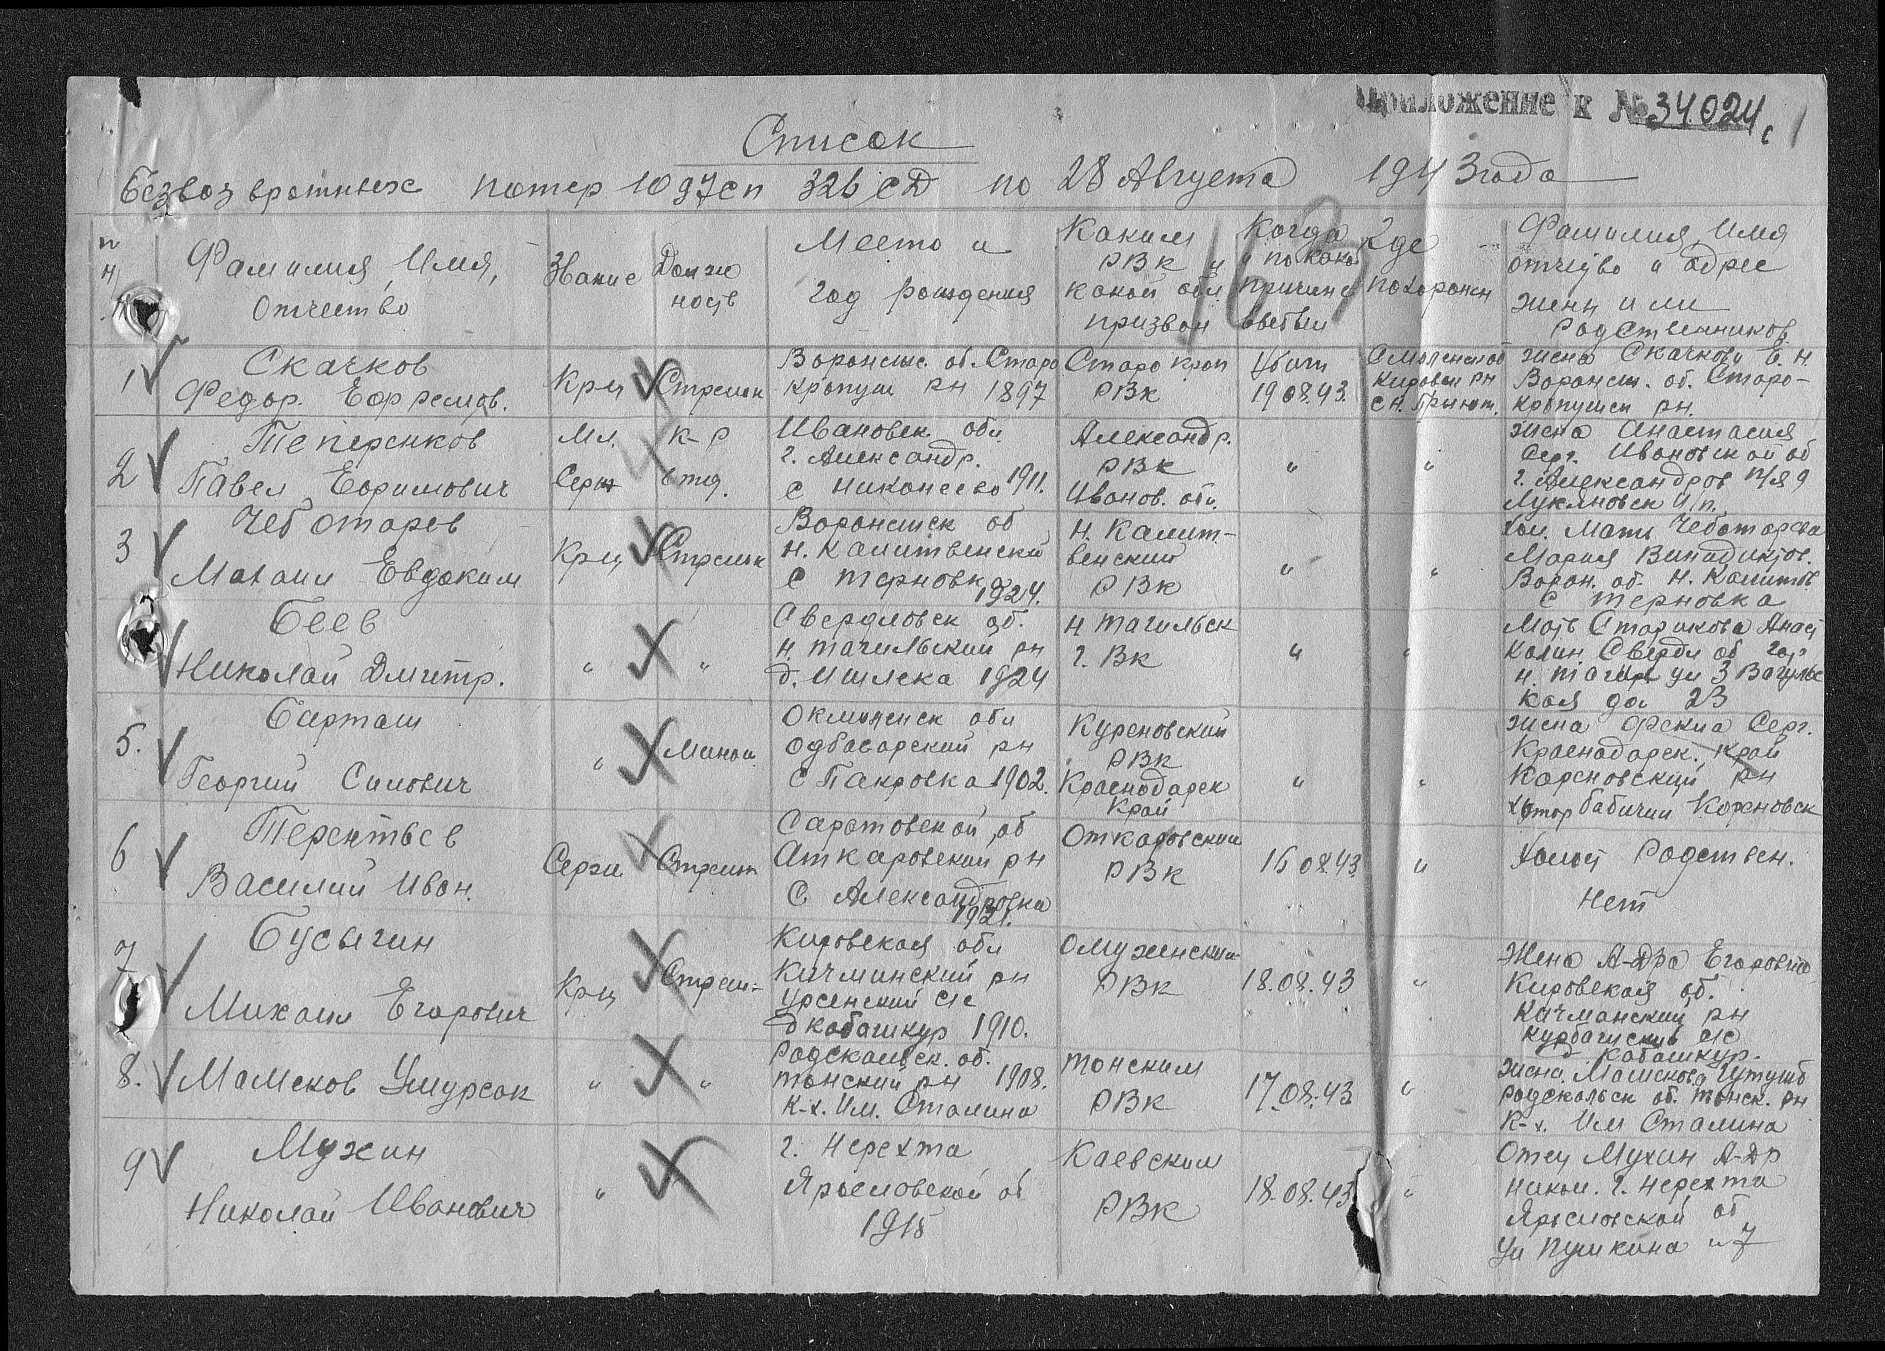 Приложение к № 34024с
Список
Безвозвратных потер 1097сп 326 СД по 28 Августа 1943 года
Фамилия, Имя, Отчество
Звание
Долж ность
Место и год рождения
Каким РВК и какой обл призван
Когда и по какой причине выбыл
Где похоронен
Фамилия Имя отчество и адрес жены или родственников
1
Скачков
Федор Ефремов.
Кр-ц
Стрелок
Воронеж. об. Старо
крапуш рн 1897
Старо крап
РВК
Убит
19.08.43.
Смоленской
Кировск рн
с н. Приют.
жена Скачкова Е. Н.
Воронеж. об. Старо-
крапушен рн.
2
Теперенков
Павел Ефримович
Мл.
Серж
К-р
отд.
Ивановск. обл.
г. Александр.
с Никонесво 1911.
Александр.
РВК
Иванов. обл.
"
"
жена Анастасия
Серг. Ивановской об
г. Александров п/я 9
Лукяновск
3
Чеботарев
Махаил Евдоким
Кр-ц
Стрелок
Воронежск об
Н. Калитвенский
с Терновк 1924.
Н. Калит-
венский
РВК
"
"
хол. Мать Чеботарева
Мария Винидиктов.
Ворон. об. Н. Калитов
с Терновка
Беев
Николай Дмитр.
"
"
Свердловск об.
Н. Тагильский рн
д. Ишлека 1924
Н Тагильск
г. ВК
"
"
Мать Старикова Анаст
Калин Свердл об гор
Н. Тагил ул 3 Вагульс
кая до 23
5.
Барташ
Георгий Силович
"
Мином
Окмоленск обл
Одбасарский рн
с Пакровка 1902.
Куреновский
РВК
Краснодарск
Край
"
"
жена Фекла Серг.
Краснодарск. край
Кореновский рн
хутор Бабичий Кореновск
6
Терентьев
Василий Иван.
Серж
Стрелк
Саратовской об
Аткаровский рн
с Александровка
1921.
Откаровским
РВК
16 08.43.
"
Холост Родствен.
Нет
7
Бусыгин
Михаил Егорович
Кр-ц
Стрел-
Кировская обл
Кичминский рн
Урсенский с/с
д кабашкур 1910.
Омуженским
РВК
18.08.43
"
Жена А-дра Егоровна
Кировская об.
Кичманский рн
Курбашский с/с
д кабашкур.
8.
Мамеков Умурсак
"
"
Родскольск. об.
Тонский рн 1908.
К-х. Им. Сталина
Тонским
РВК
17.08.43
"
жена. Мамекова
Родскольск об. Тонск. рн
К-х. Им Сталина
9
Мухин
Николай Иванович
"
г. Нерехта
Ярославской об
1918
Каевским
РВК
18.08.43
"
Отец Мухин А-др
Никол. г. Нерехта
Ярославской об
Ул Пушкина н 7